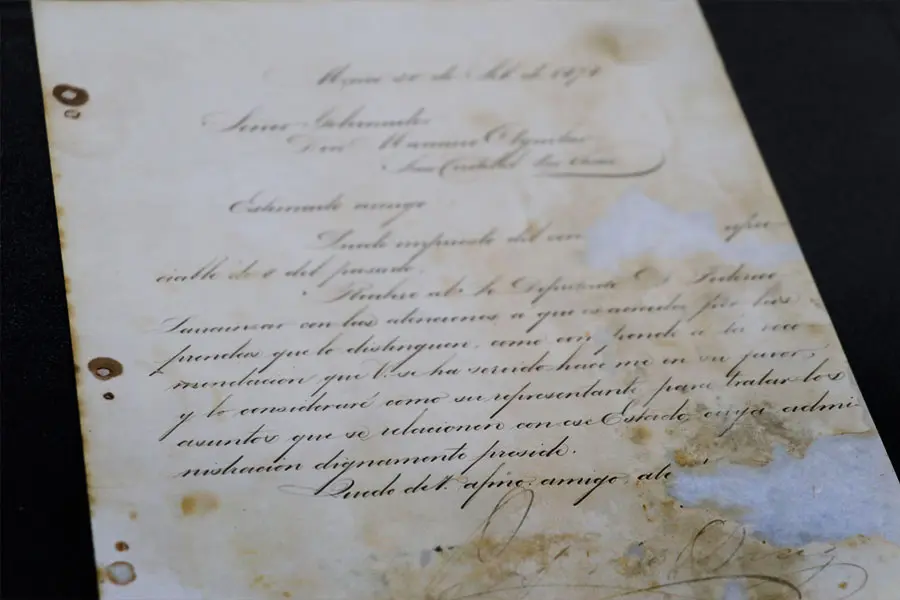 de 187
Señor Gobernador
Don Mariano
San Cristóbal Las Casas
Estimado amigo
Quedo impuesto del con apre
ciable de 8 del pasado.
Recibiré al Sr Diputado D. Federico
Larrainzar con las atenciones a que es acreedor por las
prendas que lo distinguen, como corresponde a la reco
mendacion que V. se ha servido hacerme en su favor,
y lo consideraré como su representante para tratar los
asuntos que se relacionen con ese Estado cuya admi
nistracion dignamente preside.
Quedo de V. afmo. amigo
Diaz